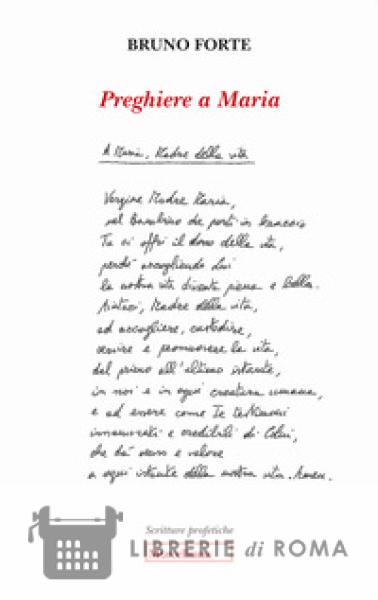 BRUNO FORTE
Preghiere a Maria
A Maria, Madre della vita
Vergine Madre Maria,
nel Bambino che porti in braccio
Tu ci offri il dono della vita,
perché accogliendo Lui
la nostra vita diventa piena e bella.
Aiutaci, Madre della vita,
ad accogliere, custodire,
servire e promuovere la vita,
dal primo all'ultimo istante,
in noi e in ogni creatura umana,
e ad essere come Te testimoni
innamorati e credibili di Colui,
che dà senso e valore
a ogni istante della nostra vita. Amen.
Scritture profetiche
LIBRERIE di ROMA